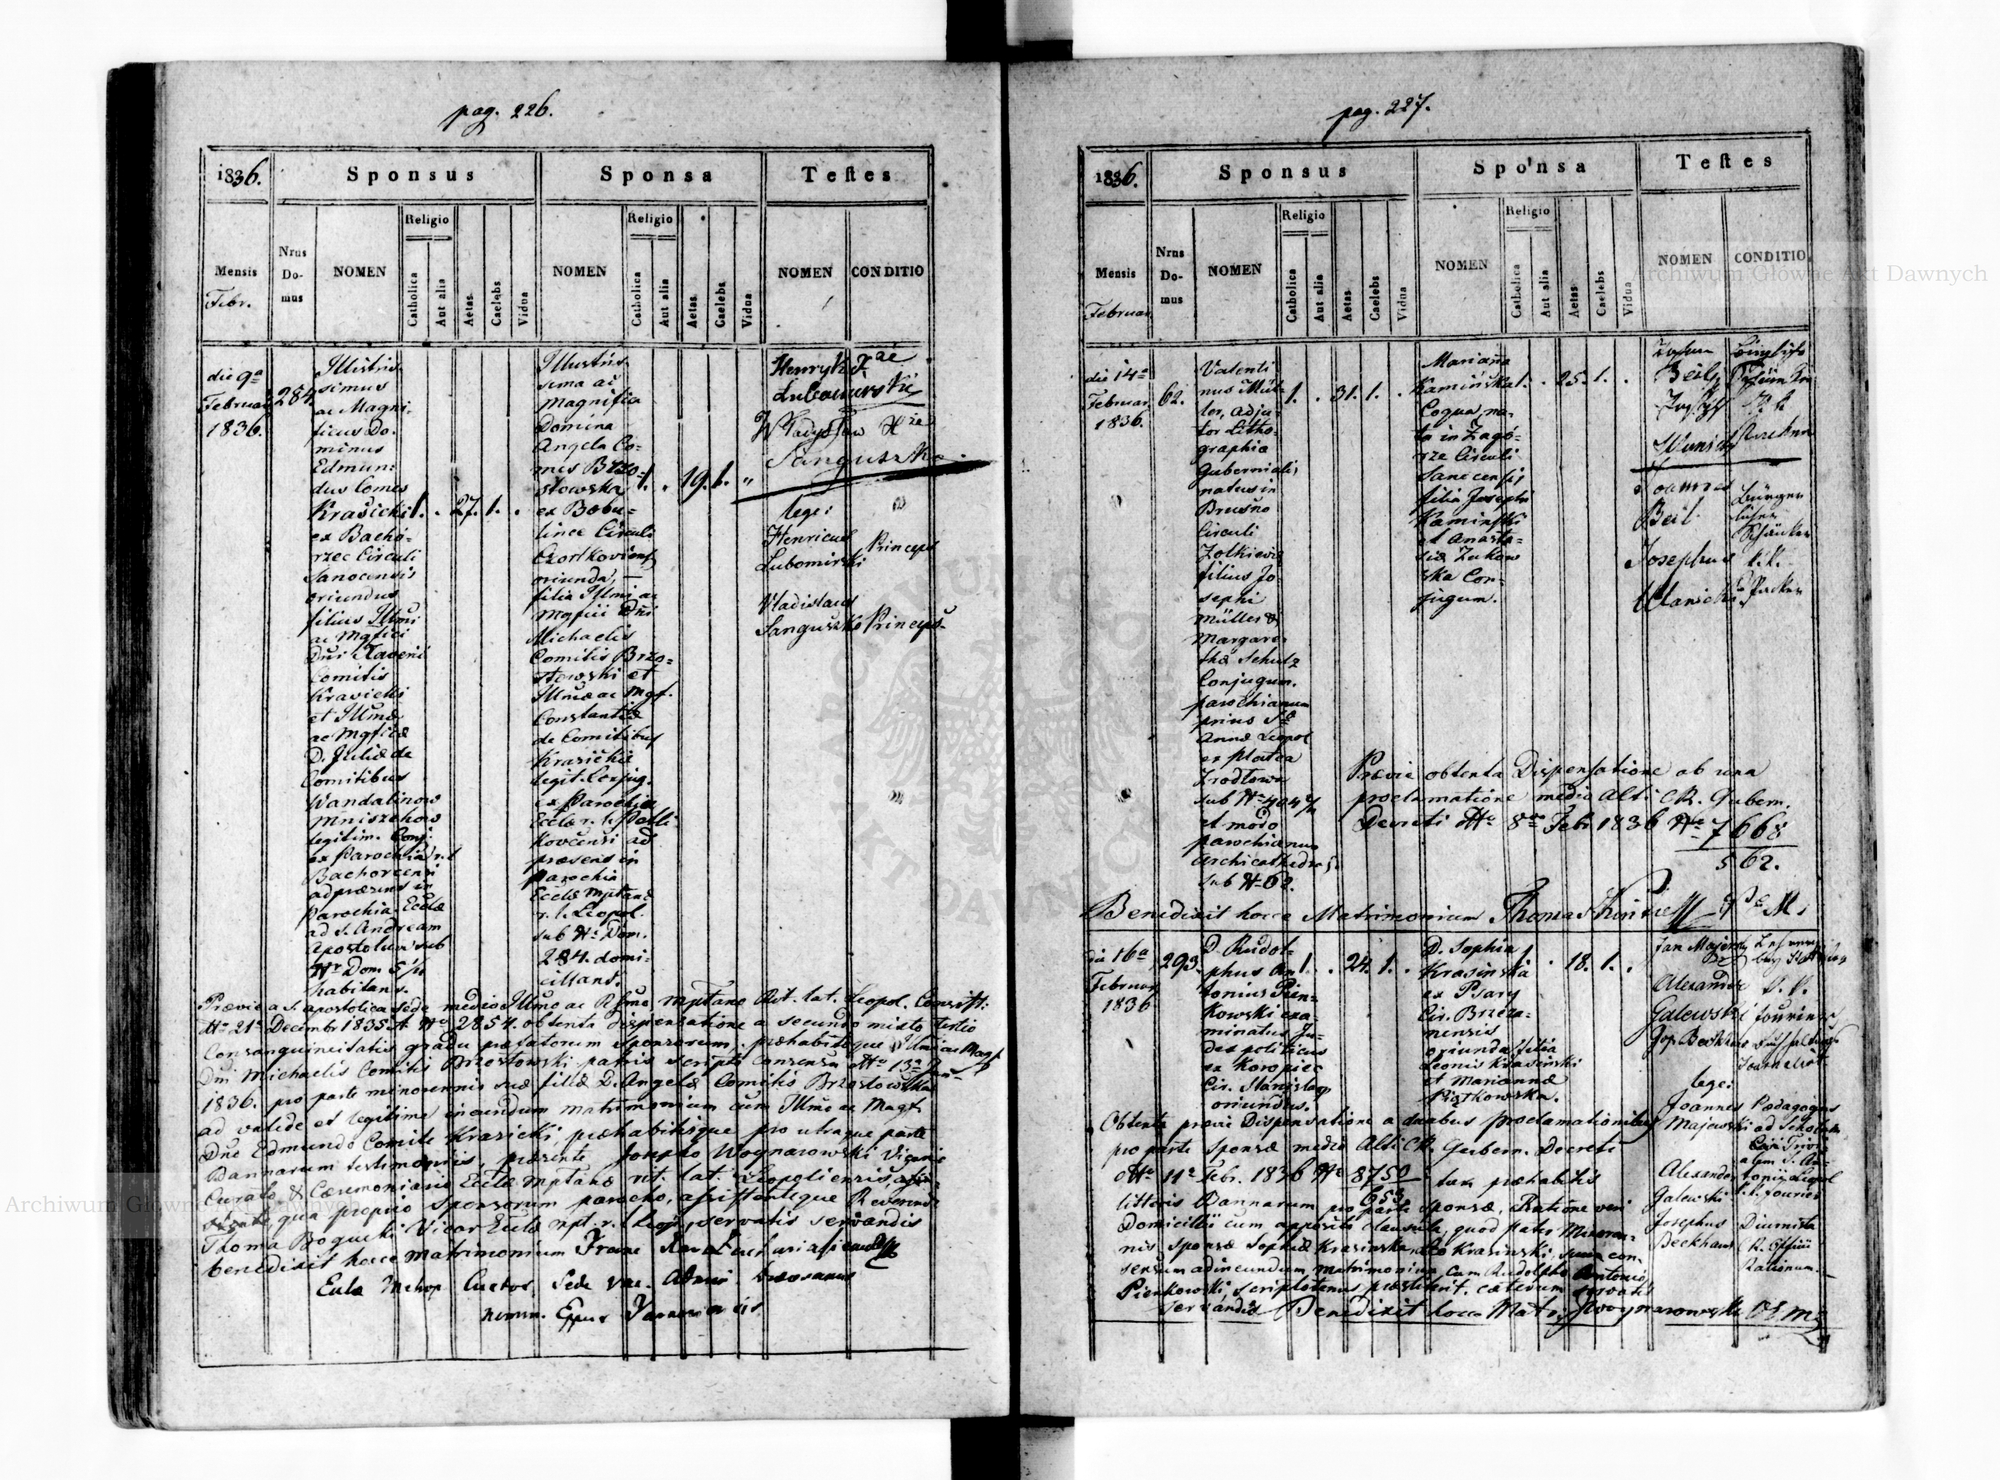 pag. 226.
1836. Sponsus Sponsa Testes
Mensis Febr.
Nrus Do-mus
NOMEN
Religio
Catholica
Aut alia
Aetas
Caelebs
Vidua
NOMEN
Religio
Catholica
Aut alia
Aetas
Caelebs
Vidua
NOMEN
CONDITIO
die 9a
Februar
1836.
284.
Illustris-
simus
ac Magni-
ficus Do-
minus
Edmun-
dus Comes
Krasicki 1. . 27. 1. .
ex Bacho-
rzec Circuli
Sanocensis
oriundus
filius Illmi
ac Mgfici
Dni Xaverii
Comitis
Krasicki
et Illmæ
ac Mgficæ
D. Juliæ de
Comitibus
Wandalinow
Mniszchow
legitim. Conj.
ex Parochia r. l.
Bachorcensi
ad præsens in
Parochia Ecclæ
ad S. Andream
Apostolum sub
Nr Dom 5/11
habitans.
Illustris-
sima ac
Magnifica
Domina
Angela Co-
mes Brzo-
stowska 1. . 19. 1. "
ex Bobu-
lince Circuli
Czortkoviens
oriunda, —
filia Illmi ac
Mgficii Dni
Michaelis
Comitis Brzo-
stowski et
Illmæ ac Mgf.
Constantiæ
de Comitibus
Krasickie
legit. Conjug.
ex Parochia
Ecclæ r. l.
præsens in
parochia
Eccla Mptana
r. l. Leopol.
sub Nr Dom.
284. domi-
cilians.
Henryk
Lubomirski
Władysław
Sanguszko
lege:
Henricus
Lubomirski Princeps
Vladislaus
Sanguszko Princeps
Prævie a S. apostolica Sede medio Illmo ac Rssmo Mptano Rit. lat. Leopol. Consist:
21a Decembr 1835 Nr 2854. obtenta dispensatione a secundo mixto tertio
Consanguineitatis gradu præfatorum Sponsorum, præhabitoque Illmi ac Magf
Dni Michaelis Comitis Brzostowski patris scripto consensu 13a Jan-
1836. pro parte minorennis suæ filiæ D. Angelæ Comitis Brzostowska
ad valide et legitime ineundum matrimonium cum Illmo ac Magf.
Dno Edmundo Comite Krasicki, præhabitisque pro utraque parte
Bannorum testimoniis, præsente Josepho Wognarowski Vicario
Curato & Cæremoniario Ecclæ Mptanæ rit. lat. Leopoliensis,
qua proprio sponsorum parocho, assistenteque Reverendo
Thoma Bogucki Vicar Eccla Mpt. r. l. Leop, servatis servandis
benedixit hocce matrimonium
Eccla Metrop Custos, Sede vac. Admin
nomin. Eppus
pag. 227.
1836. Sponsus Sponsa Testes
Mensis Februar
Nrus Do-mus
NOMEN
Religio
Catholica
Aut alia
Aetas
Caelebs
Vidua
NOMEN
Religio
Catholica
Aut alia
Aetas
Caelebs
Vidua
NOMEN
CONDITIO
die 14a
Februar
1836.
62.
Valenti
nus Mül-
ler, adju- 1. . 31. 1. .
tor Litho-
graphia
Gubernialis
natus in
Brusno
Circuli
Zolkiewie
filius Jo-
sephi
Müller &
Margare-
tha Schutz
Conjugum.
parochianus
prius Stæ
Annæ Leopol
ex platea
Zrodłowa
sub Nr 404 2/4
et modo
parochianus
Archicathedras.
sub Nr 62.
Marianna
Kamińska 1. . 25. 1. .
Coqua, na-
ta in Zagó-
rze Circuli
Sanocensis
filia Josephi
Kaminski
et Anasta-
siæ Zukow
ska Con-
jugum.
Joannes
Beil.
Josephus
Wanicki
Bürger
Schänker
k. k.
Packer
Prævie obtenta Dispensatione ab una
proclamatione medio Alti C.R. Gubern.
Decreti 8va Febr 1836 Nr 7668
562.
Benedixit hocce Matrimonium Thomas
die 16a
Februar
1836
293.
D. Rudol-
phus An 1. . 24. 1. .
tonius Pien-
kowski exa-
minatus Ju-
dex politicus
ex Koropiec
Cir. Stanislaop
oriundus.
D. Sophia
Krasinska 1. . 18. 1. .
ex Psary
Cir. Brzeza-
nensis
oriunda filia
Leonis Krasinski
et Mariannæ
Piątkowska.
Jan Majewski
Alexander
Galewski
Jos. Beckhaus
lege:
Joannes Pædagogus
Majewski ad Scholam
Alexander
Galewski
Josephus Diurnista
Beckhaus C.R. Officii
Obtenta prævie Dispensatione a duabus proclamationibus
pro parte Sponsæ medio Alti C.R. Gubern. Decreti
11a Febr. 1836 Nr 8750
653,
tum præhabitis
litteris Bannorum pro parte Sponsæ, Ratione veri
Domicilii cum apposita clausula, quod pater Minoren-
nis sponsæ Sophiæ Krasinska Leo Krasinski, suum con-
sensum ad ineundum matrimonium cum Rudolpho Antonio
Pienkowski, scriptotenus præstiterit. cæterum servatis
servandis Benedixit hocce Matr.